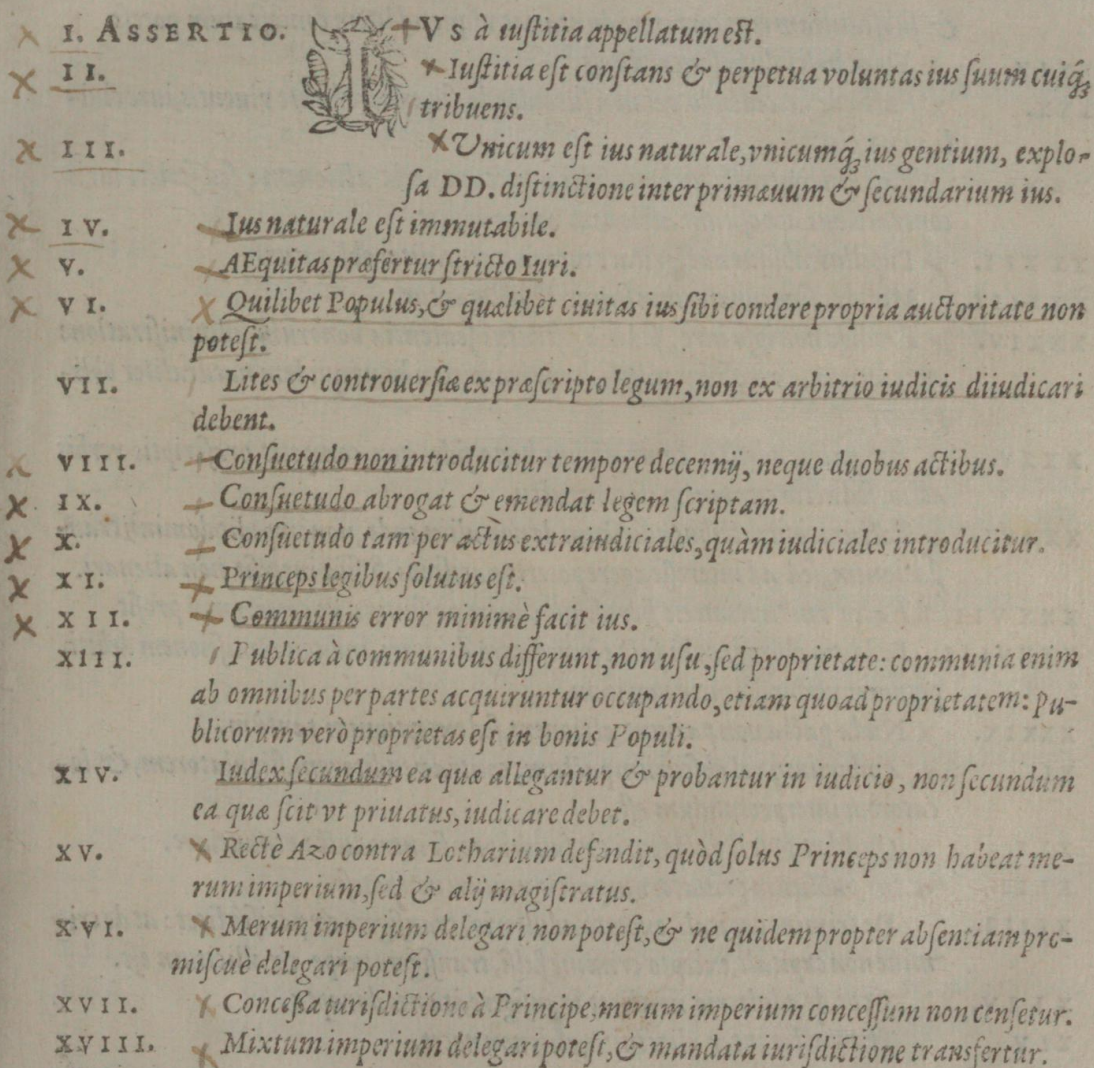 I. ASSERTIO. IVs à iuſtitia appellatum eſt.
II. Iuſtitia eſt conſtans & perpetua voluntas ius ſuum cuiq́;
tribuens.
III. Vnicum eſt ius naturale, vnicumq́; ius gentium, explo-
ſa DD. diſtinctione inter primæuum & ſecundarium ius.
IV. Ius naturale eſt immutabile.
V. AEquitas præfertur ſtricto Iuri.
VI. Quilibet Populus, & quælibet ciuitas ius ſibi condere propria auctoritate non
poteſt.
VII. Lites & controuerſiæ ex præſcripto legum, non ex arbitrio iudicis diiudicari
debent.
VIII. Conſuetudo non introducitur tempore decennij, neque duobus actibus.
IX. Conſuetudo abrogat & emendat legem ſcriptam.
X. Conſuetudo tam per actus extraiudiciales, quàm iudiciales introducitur.
XI. Princeps legibus ſolutus eſt.
XII. Communis error minimè facit ius.
XIII. Publica à communibus differunt, non uſu, ſed proprietate: communia enim
ab omnibus per partes acquiruntur occupando, etiam quoad proprietatem: pu-
blicorum verò proprietas eſt in bonis Populi.
XIV. Iudex ſecundum ea quæ allegantur & probantur in iudicio, non ſecundum
ea quæ ſcit vt priuatus, iudicare debet.
XV. Rectè Azo contra Lotharium defendit, quòd ſolus Princeps non habeat me-
rum imperium, ſed & alij magiſtratus.
XVI. Merum imperium delegari non poteſt, & ne quidem propter abſentiam pro-
miſcuè delegari poteſt.
XVII. Conceßa iuriſdictione à Principe, merum imperium conceſſum non cenſetur.
XVIII. Mixtum imperium delegari poteſt, & mandata iuriſdictione transfertur.